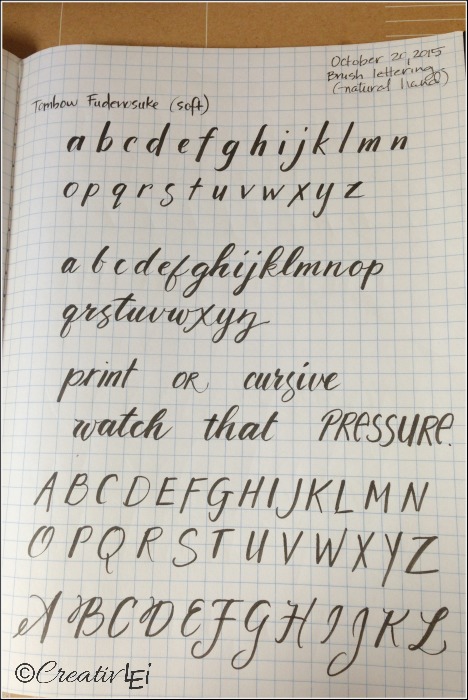 October 20, 2015
Brush lettering
(natural hand)
Tombow Fudenosuke (soft)
a b c d e f g h i j k l m n
o p q r s t u v w x y z
a b c d e f g h i j k l m n o p
q r s t u v w x y z
print OR cursive
watch that PRESSURE.
A B C D E F G H I J K L M N
O P Q R S T U V W X Y Z
A B C D E F G H I J K L
©CreativLEi